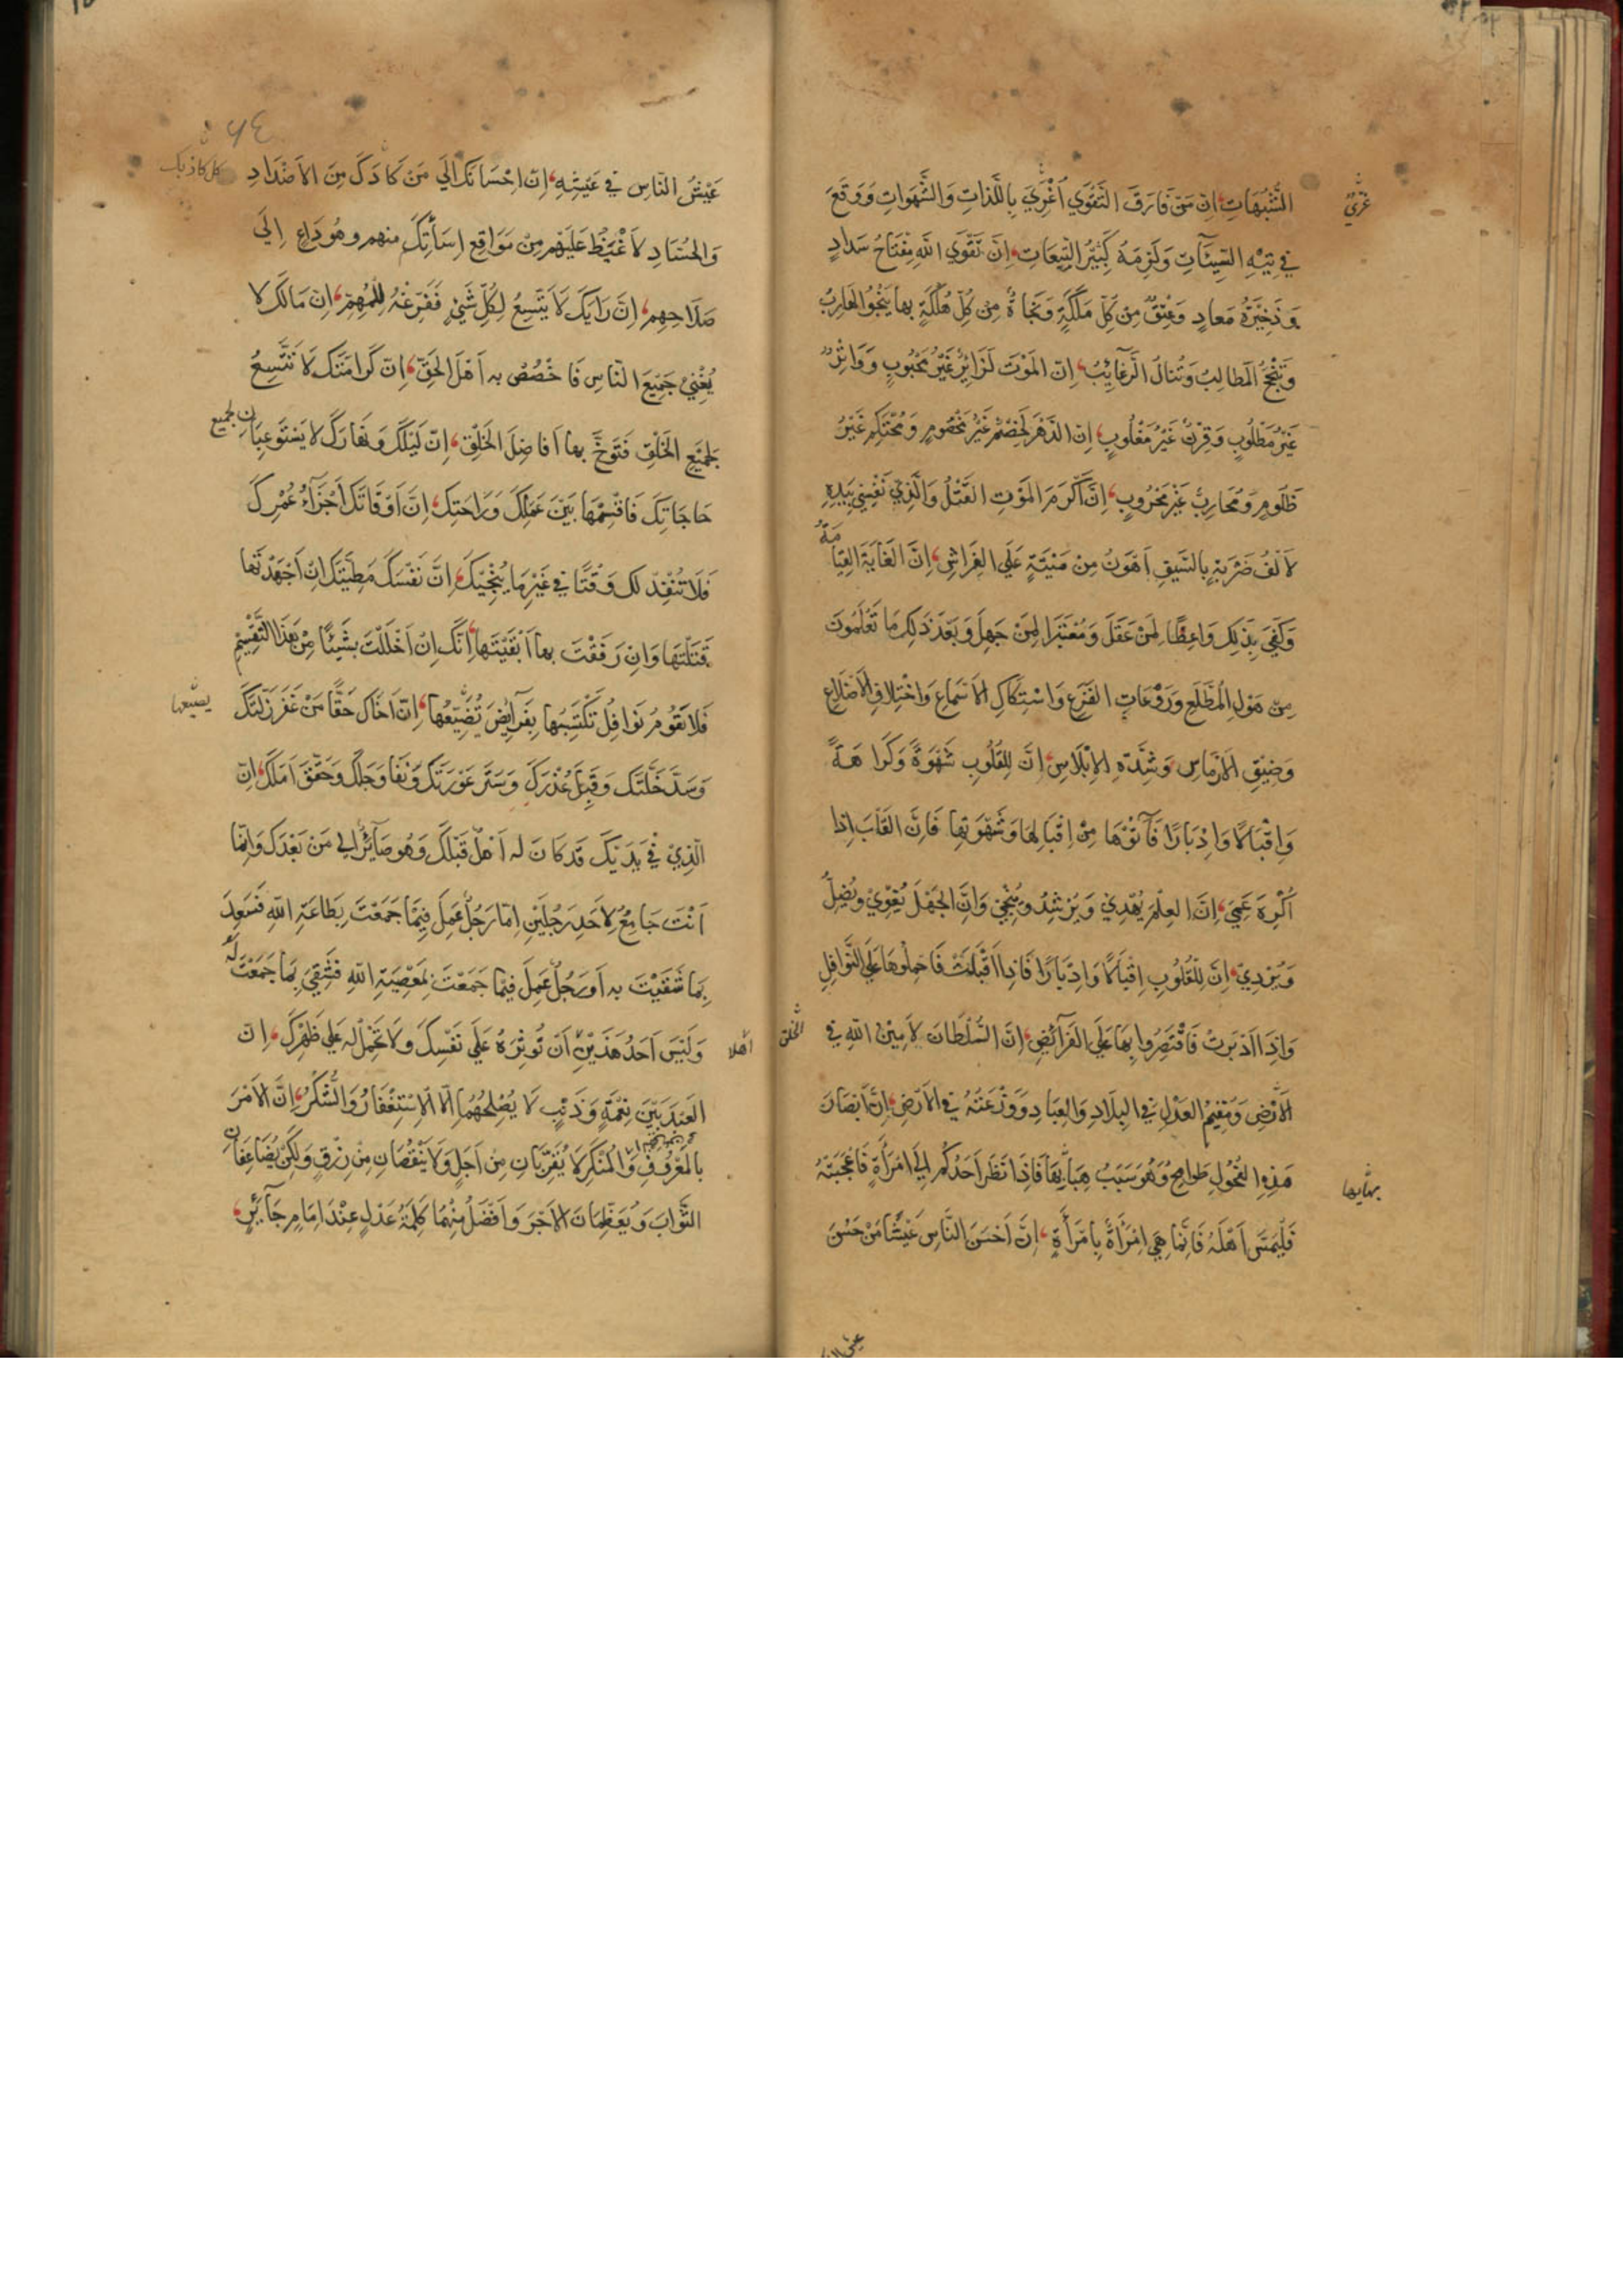 الشُّبُهَاتِ، اِنَّ مَنْ فَارَقَ التَّقْوَي اُغْرِيَ بِاللَّذاتِ وَالشَّهَواتِ وَوَقَعَ
غُرِّيَ
في تِيْهِ السَّيِّئَآتِ وَلَزِمَهُ كَبِيْرُ التَّبِعَاتِ، اِنَّ تَقْوَي اللهِ مِفْتَاحُ سَدَادٍ
وَذَخِيْرَةُ مَعادٍ وَعِتْقٌ مِنْ كُلِّ مَلَكَةٍ وَنَجَاةٌ مِنْ كُلِّ هَلَكَةٍ بها يَنْجُوا الهَارِبُ
وَتَنْجَحُ المَطالِبُ وَتُنالُ الرَّغآيِبُ، اِنّ المَوْتَ لَزَائِرٌ غَيْرُ مَحْبُوبٍ وَوَاتِرٌ
غَيْرُ مَطْلُوبٍ وَقِرْنٌ غَيْرُ مَغْلُوبٍ، اِنّ الدَّهْرَ لَخَصْمٌ غَيْرُ مَخْصُومٍ وَمُحْتَكِمٌ غَيْرُ
ظَلُومٍ وَمُحَارِبٌ غَيْرُ مَحْرُوبٍ، اِنَّ اَكْرَمَ المَوْتِ القَتْلُ وَالَّذِيْ نَفْسِيْ بِيَدِهِ
لَاَلْفُ ضَرْبَةٍ بِالسَّيفِ اَهْوَنُ مِنْ مَيْتَةٍ عَلَي الفِرَاشِ، اِنَّ الغَايَةَ القِيَامَةُ
وَكَفَي بِذٰلِكَ وَاعِظًا لِمَنْ عَقَلَ وَمُعْتَبَرًا لِمَنْ جَهِلَ وَبَعْدَ ذٰلِكَ مَا تَعْلَمُونَ
مِنْ هَوْلِ المُطَّلَعِ وَرَوْعَاتِ الفَزَعِ وَاسْتِكَاكِ الاَسْمَاعِ وَاخْتِلَافِ الاَضْلَاعِ
وَضِيْقِ الاَرْمَاسِ وَشِدَّةِ الاِبْلَاسِ، اِنَّ لِلقُلُوبِ شَهْوَةً وَكَرَاهَةً
وَاِقْبَالًا وَاِدْبَارًا فَأْتُوْهَا مِنْ اِقْبَالِهَا وَشَهْوَتِها فَاِنَّ القَلْبَ اِذَا
اُكْرِهَ عَمِيَ، اِنَّ العِلْمَ يُهْدِيْ وَيُرْشِدُ وَيُنْجِيْ وَاِنَّ الجَهْلَ يُغْوِيْ وَيُضِلُّ
وَيُرْدِيْ، اِنَّ لِلْقُلُوبِ اِقْبَالًا وَاِدْبَارًا فَاِذَا اَقْبَلَتْ فَاحْمِلُوهَا عَلَي النَّوَافِلِ
وَاِذَا اَدْبَرَتْ فَاقْتَصِرُوا بِهَا عَلَي الفَرَآئِضِ، اِنَّ السُّلْطَانَ لَاَمِيْنُ اللهِ في
الخلق
الاَرْضِ وَمُقِيْمُ العَدْلِ فِي البِلَادِ وَالعِبَادِ وَوَزَعَتُهُ فِي الاَرْضِ، اِنَّ اَبْصَارَ
هٰذِهِ الفُحُولِ طَوَامِحُ وَهُوَ سَبَبُ هِبَابِهَا فَاِذَا نَظَرَ اَحَدُكُمْ اِلَي امْرَأَةٍ فَاَعْجَبَتْهُ
فَلْيَمَسَّ اَهْلَهُ فَاِنَّمَا هِيَ امْرَأَةٌ بِامْرَأَةٍ، اِنَّ اَحْسَنَ النَّاسِ عَيْشًا مَنْ حَسُنَ
عَيْشُ النَّاسِ فِي عَيْشِهِ، اِنّ اِحْسَانَكَ اِلَي مَنْ كَادَكَ مِنَ الاَضْدَادِ
وَالحُسَّادِ لَاَغْيَظُ عَلَيْهِم مِنْ مَوَاقِعِ اِسَأَتِكَ منهم وهُوَ دَاعٍ اِلَي
صَلَاحِهِم، اِنَّ رَايَكَ لَا يَتَّسِعُ لِكُلِّ شَيْءٍ فَفَرِّغْهُ لِلْمُهِمِّ، اِنّ مَالَكَ لا
يُغْنِيْ جَمِيْعَ النّاسِ فَاخْصُصْ به اَهْلَ الحَقِّ، اِنّ كَرَامَتَكَ لَا تَتَّسِعُ
لِجَمِيْعِ الخَلْقِ فَتَوَخَّ بها اَفَاضِلَ الخَلْقِ، اِنّ لَيْلَكَ وَنَهَارَكَ لا يَسْتَوعِبَانِ لجميع
حَاجَاتِكَ فَاقْسِمْهَا بَيْنَ عَمَلِكَ وَرَاحَتِكَ، اِنَّ اَوْقَاتَكَ اَجْزَآءُ عُمْرِكَ
فَلَا تُنْفِدْ لك وَقْتًا في غَيْرِ مَا يُنْجِيْكَ، اِنَّ نَفْسَكَ مَطِيَّتُكَ اِنْ اَجْهَدْتَها
قَتَلْتَهَا وَاِنْ رَفَقْتَ بها اَبْقَيْتَهَا، اِنَّكَ اِنْ اَخْلَلْتَ بشَيْئًا مِنْ هَذَا التَّقْسِيْمِ
فَلا تَقُومُ نَوَافِلُ تَكْتَسِبُهَا بِفَرَآئِضَ تُضَيِّعُهَا، اِنّ اَخَاكَ حَقًّا مَنْ غَفَرَ زَلَّتَكَ
يضيعها
وَسَدَّ خَلَّتَكَ وَقَبِلَ عُذْرَكَ وَسَتَرَ عَوْرَتَكَ وَنَفَا وَجَلَكَ وَحَقَّقَ اَمَلَكَ، اِنّ
الّذِيْ فِيْ يَدَيْكَ قَد كَانَ له اَهْلٌ قَبْلَكَ وَهُو صَآئِرٌ اِلي مَنْ بَعْدَكَ وَاِنَّما
اَنْتَ جَامِعٌ لِاَحَدِ رَجُلَيْنِ اِمّا رَجُلٌ عَمِلَ فِيْمَا جَمَعْتَ بِطَاعَةِ اللهِ فَسَعِدَ
بِمَا شَقِيْتَ به اَو رَجُلٌ عَمِلَ فِيمَا جَمَعْتَ بِمَعْصِيَةِ اللهِ فَشَقِيَ بِمَا جَمَعْتَ لَهُ
وَلَيْسَ اَحَدُ هَذَيْنِ اَنْ تُوثِرَهُ عَلَي نَفْسِكَ وَلَا تَحْمِلْ له عَلي ظَهْرِكَ، اِنّ
اهلا
العَبْدَ بَيْنَ نِعْمَةٍ وَذَنْبٍ لَا يُصْلِحُهُمَا اِلّا الاِسْتِغْفَارُ وَالشُّكْرُ، اِنَّ الاَمْرَ
بِالمَعْرُوفِ وَالمُنْكَرِ لَا يُقَرِّبَانِ مِنْ اَجَلٍ وَلَا يَنْقُصَانِ مِنْ رِزْقٍ وَلَكِنْ يُضَاعِفَانِ
الثَّوَابَ وَيُعَظِّمَانَ الاَجْرَ وَاَفْضَلُ مِنْهُمَا كَلِمَةُ عَدْلٍ عِنْدَ اِمَامٍ جَآئِرٍ،